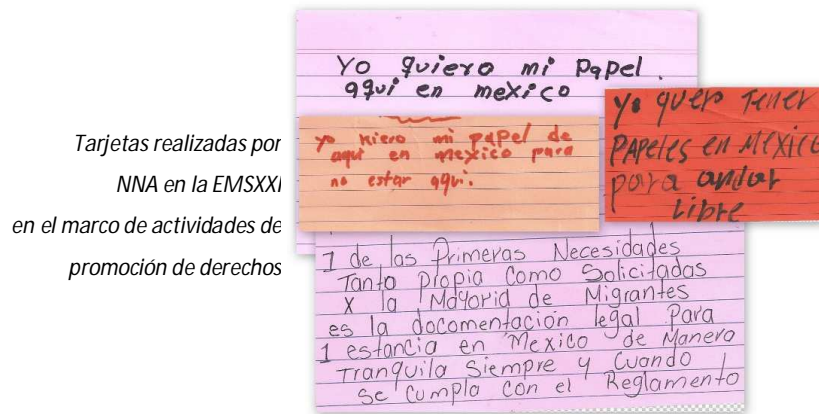 Tarjetas realizadas por
NNA en la EMSXXI
en el marco de actividades de
promoción de derechos
Yo quiero mi papel.
aqui en mexico
yo kiero mi papel de
aqui en mexico para
no estar aqui.
Yo quero tener
PAPeles en MEXICO
para andar
Libre
1 de las Primeras Necesidades
Tanto propia Como Solicitadas
X la Mayoria de Migrantes
es la documentación legal Para
1 estancia en Mexico de Manera
Tranquila Siempre y Cuando
Se Cumpla con el Reglamento